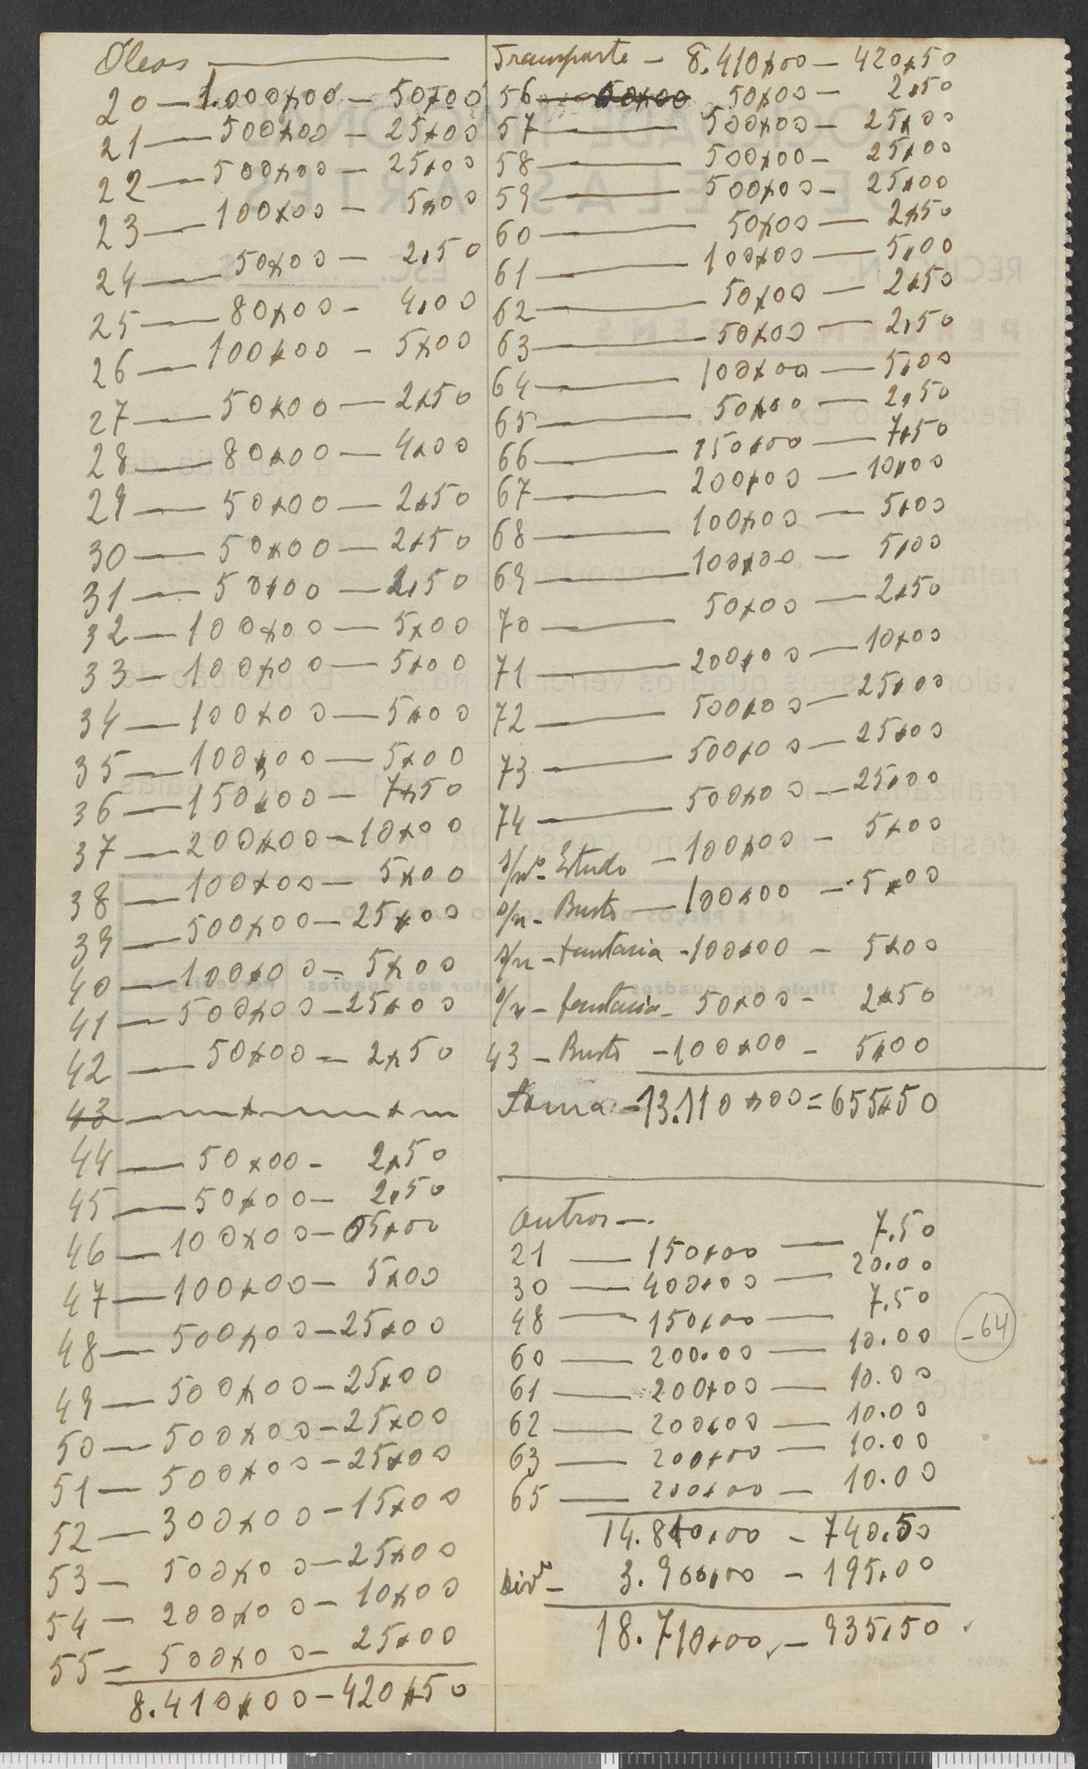 Oleos
20 — 1.000x00 — 50x00
21 — 500x00 — 25x00
22 — 500x00 — 25x00
23 — 100x00 — 5x00
24 — 50x00 — 2,50
25 — 80x00 — 4,00
26 — 100x00 — 5x00
27 — 50x00 — 2x50
28 — 80x00 — 4x00
29 — 50x00 — 2x50
30 — 50x00 — 2x50
31 — 50x00 — 2,50
32 — 100x00 — 5x00
33 — 100x00 — 5x00
34 — 100x00 — 5x00
35 — 100x00 — 5x00
36 — 150x00 — 7x50
37 — 200x00 — 10x00
38 — 100x00 — 5x00
39 — 500x00 — 25x00
40 — 100x00 — 5x00
41 — 500x00 — 25x00
42 — 50x00 — 2x50
43
44 — 50x00 — 2x50
45 — 50x00 — 2,50
46 — 100x00 — 05x00
47 — 100x00 — 5x00
48 — 500x00 — 25x00
49 — 500x00 — 25x00
50 — 500x00 — 25x00
51 — 500x00 — 25x00
52 — 300x00 — 15x00
53 — 500x00 — 25x00
54 — 200x00 — 10x00
55 — 500x00 — 25x00
8.410x00 — 420x50
Transporte — 8.410x00 — 420x50
56 — 50x00 50x00 — 2,50
57 — 500x00 — 25x00
58 — 500x00 — 25x00
59 — 500x00 — 25x00
60 — 50x00 — 2x50
61 — 100x00 — 5,00
62 — 50x00 — 2x50
63 — 50x00 — 2,50
64 — 100x00 — 5,00
65 — 50x00 — 2,50
66 — 150x00 — 7x50
67 — 200x00 — 10x00
68 — 100x00 — 5x00
69 — 100x00 — 5,00
70 — 50x00 — 2x50
71 — 200x00 — 10x00
72 — 500x00 — 25x00
73 — 500x00 — 25x00
74 — 500x00 — 25x00
s/nº. Estudo — 100x00 — 5x00
s/n — Busto — 100x00 — 5x00
s/n — fantasia — 100x00 — 5x00
s/n — fantasia — 50x00 — 2x50
43 — Busto — 100x00 — 5x00
Soma — 13.110x00 = 655x50
Outros —.
21 — 150x00 — 7.50
30 — 400x00 — 20.00
48 — 150x00 — 7.50
60 — 200.00 — 10.00
61 — 200x00 — 10.00
62 — 200x00 — 10.00
63 — 200x00 — 10.00
65 — 200x00 — 10.00
-64
14.810,00 — 740.50
3.900,00 — 195.00
18.710x00 — 935,50